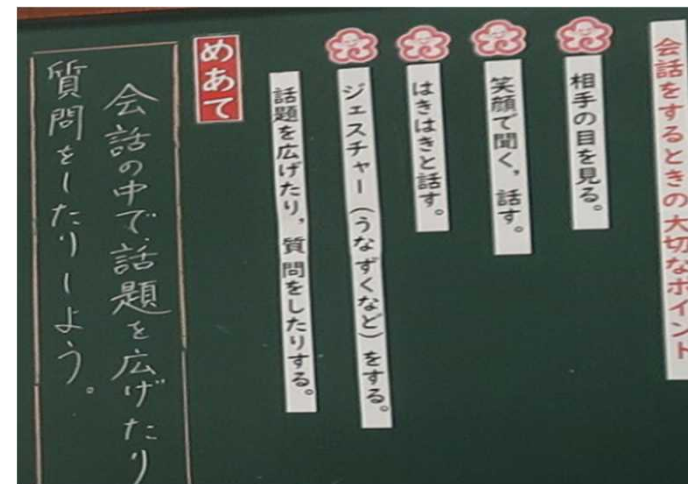 会話をするときの大切なポイント
相手の目を見る。
笑顔で聞く，話す。
はきはきと話す。
ジェスチャー（うなずくなど）をする。
話題を広げたり，質問をしたりする。
めあて
会話の中で話題を広げたり
質問をしたりしよう。